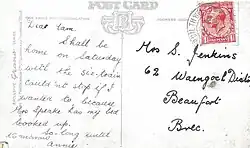 POST CARD
Dear Sam.
Shall be
home on Saturday
with the six-train
could not stop if I
wanted to because
Mrs Sparks has my bed
booked up.
So-long until
tomorrow
Annie
Mrs S. Jenkins
62 Waengoch Dist
Beaufort
Brec.